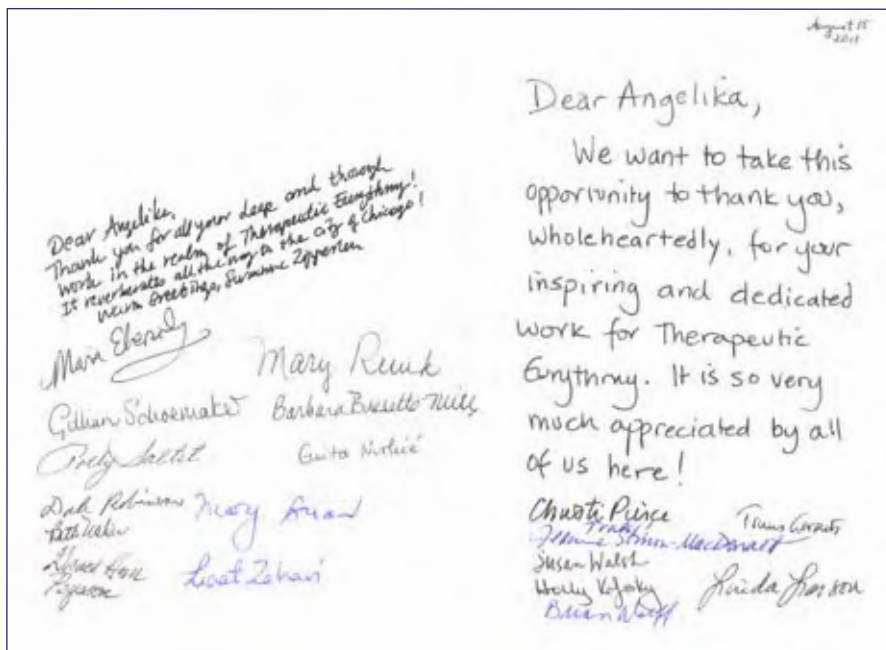 Dear Angelika,
Thank you for all your deep and through
work in the realm of Therapeutic Eurythmy!
It reverberates all the way to the city of Chicago!
Warm Greetings, Susanne Zipperlen
Maria Ebersole
Mary Ruud
Gillian Schoemaker
Barbara Bresette-Mills
Saltet
Guita
Dale Robinson
Mary Arnan
Beth Usher
Liat Zehavi
August 15
Dear Angelika,
We want to take this
opportunity to thank you,
wholeheartedly, for your
inspiring and dedicated
work for Therapeutic
Eurythmy. It is so very
much appreciated by all
of us here!
Christi Pierce
Truus Geraets
Jeanne Simon-MacDonald
Susan Walsh
Holly Kofsky
Linda Larson
Brian